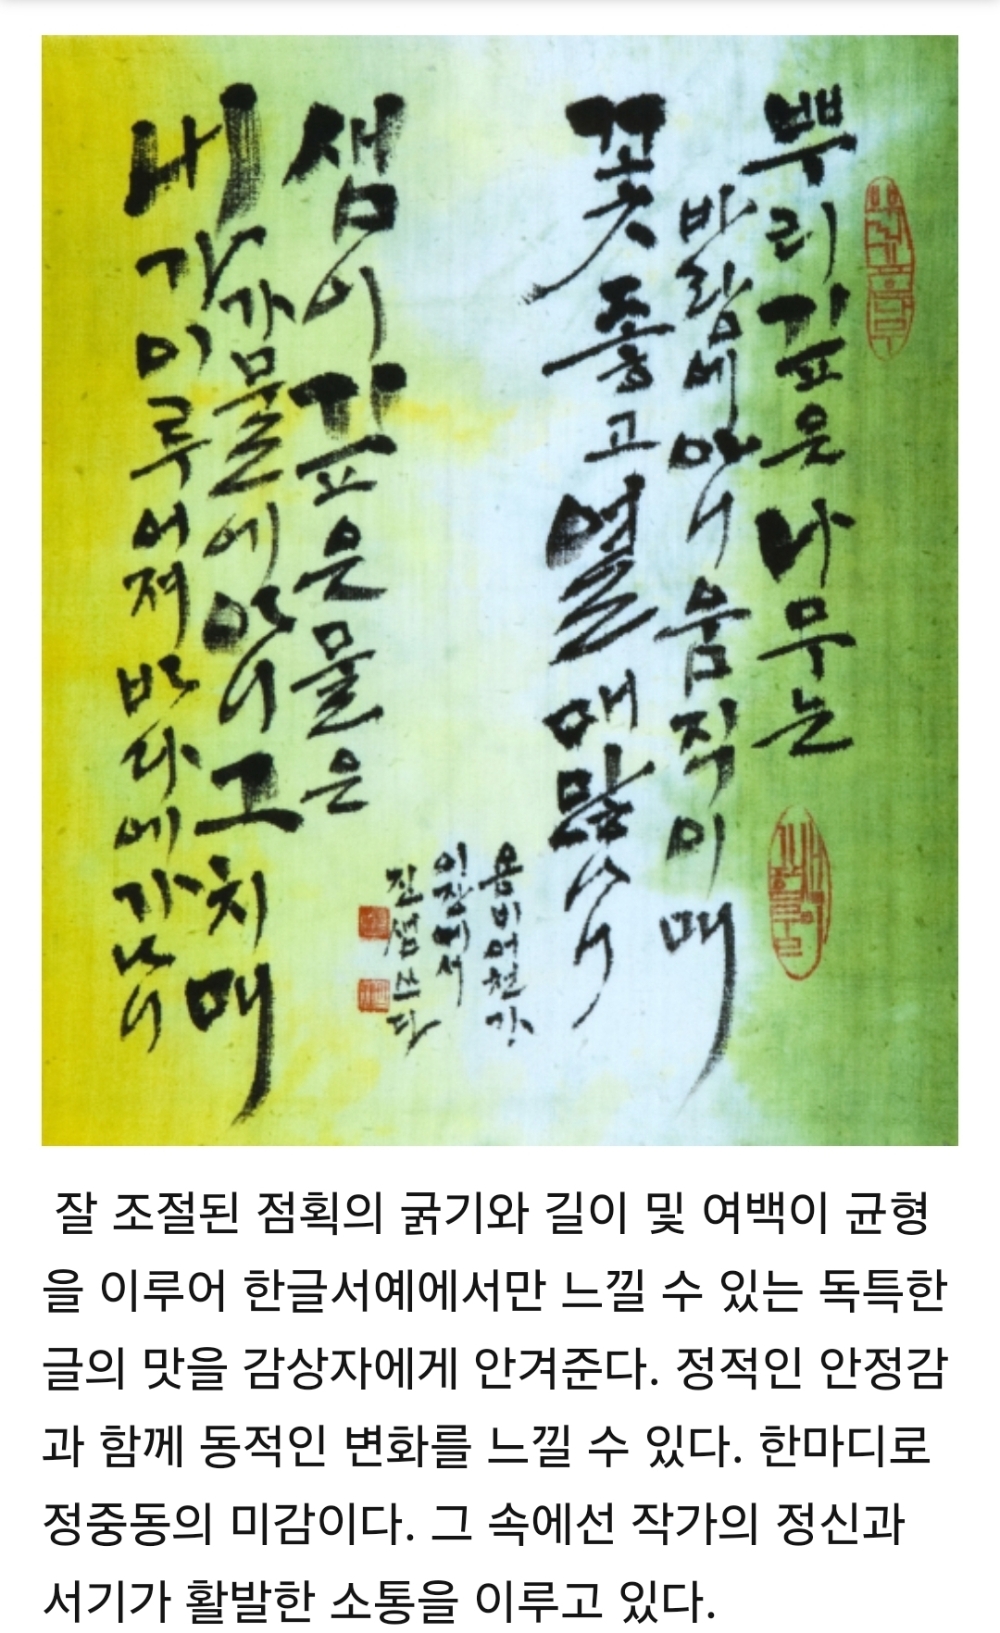 뿌리 깊은 나무는
바람에 아니 움직이매
꽃 좋고 열매
샘이 깊은 물은
가물에 아니 그치매
내가 이루어져 바다에 가나니
용비어천가
이장에서
진샘 쓰다
잘 조절된 점획의 굵기와 길이 및 여백이 균형
을 이루어 한글서예에서만 느낄 수 있는 독특한
글의 맛을 감상자에게 안겨준다. 정적인 안정감
과 함께 동적인 변화를 느낄 수 있다. 한마디로
정중동의 미감이다. 그 속에선 작가의 정신과
서기가 활발한 소통을 이루고 있다.